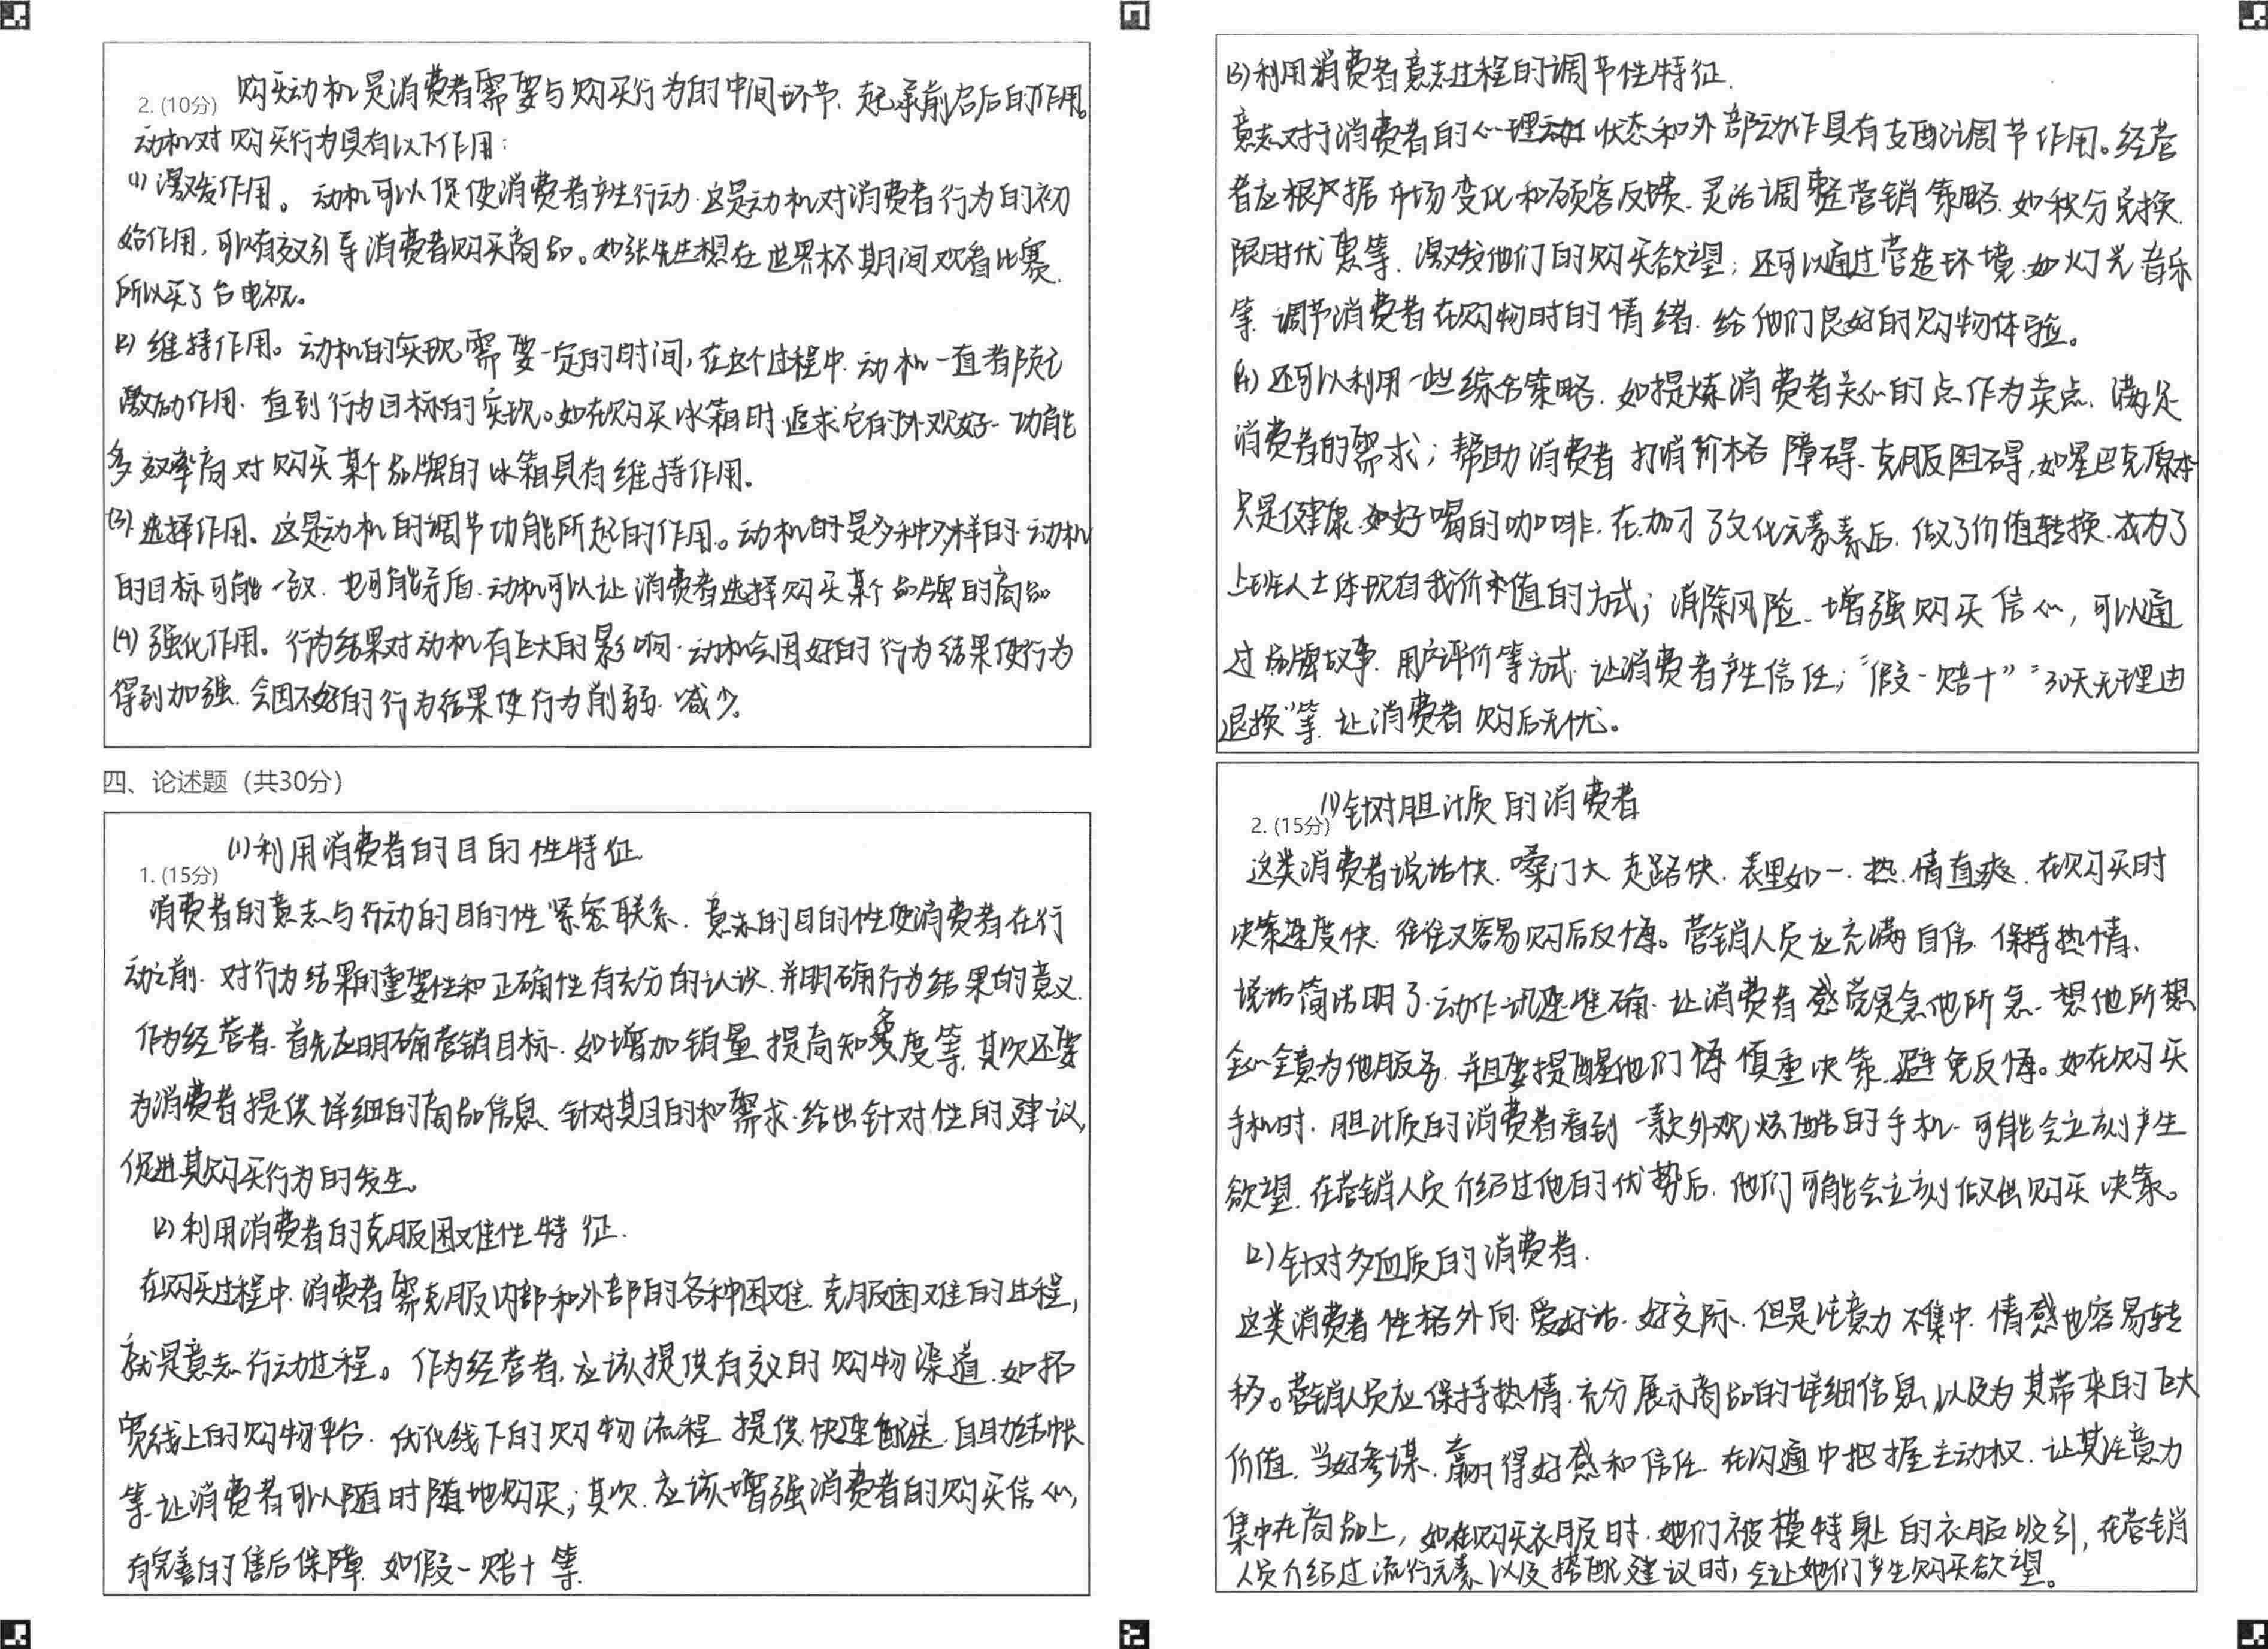 2. (10分) 购买动机是消费者需要与购买行为的中间环节、起承前启后的作用。
动机对购买行为具有以下作用:
(1) 激发作用。动机可以促使消费者产生行动.这是动机对消费者行为的初
始作用,可以有效引导消费者购买商品。如张先生想在世界杯期间观看比赛.
所以买了台电视。
(2) 维持作用。动机的实现需要一定的时间,在这个过程中.动机一直都陪记
激励作用.直到行为目标的实现。如在购买冰箱时.追求它的外观好、功能
多效率高对购买某个品牌的冰箱具有维持作用。
(3) 选择作用、这是动机的调节功能所起的作用。动机的是多种多样的.动机
的目标可能一致.也可能矛盾.动机可以让消费者选择购买某个品牌的商品
(4) 强化作用。行为结果对动机有巨大的影响.动机会因好的行为结果使行为
得到加强.会因不好的行为结果使行为削弱.减少。
四、论述题(共30分)
(1)利用消费者的目的性特征
1. (15分)
消费者的意志与行动的目的性紧密联系.意志的目的性使消费者在行
动之前.对行为结果的重要性和正确性有充分的认识.并明确行为结果的意义.
作为经营者.首先应明确营销目标.如增加销量提高知名度等.其次还要
为消费者提供详细的商品信息.针对其目的和需求.给出针对性的建议,
促进其购买行为的发生。
(2)利用消费者的克服困难性特征.
在购买过程中.消费者需克服内部和外部的各种困难.克服困难的过程,
就是意志行动过程。作为经营者,应该提供有效的购物渠道.如拓
宽线上的购物平台.优化线下的购物流程.提供快速配送.自助结帐
等.让消费者可以随时随地购买;其次.应该增强消费者的购买信心,
有完善的售后保障.如假一赔十等.
(3)利用消费者意志过程的调节性特征.
意志对于消费者的心理状态和外部动作具有支配让调节作用。经营
者应根据市场变化和顾客反馈.灵活调整营销策略.如积分兑换.
限时优惠等.激发他们的购买欲望;还可以通过营造环境.如灯光音乐
等.调节消费者在购物时的情绪.给他们良好的购物体验。
(4)还可以利用一些综合策略.如提炼消费者关心的点作为卖点.满足
消费者的需求;帮助消费者打消价格障碍.克服阻碍,如星巴克原本
只是健康.好喝的咖啡.在加了文化元素后.做了价值转换.成为了
上班人士体现自我价值的方式;消除风险、增强购买信心,可以通
过品牌故事.用户评价等方式.让消费者产生信任;“假一赔十”“30天无理由
退换”等.让消费者购后无忧。
(1)针对胆汁质的消费者
2. (15分)
这类消费者说话快.嗓门大.走路快.表里如一.热情直爽.在购买时
决策速度快.往往又容易购后反悔。营销人员应充满自信.保持热情、
说话简洁明了.动作迅速准确.让消费者感觉是急他所急、想他所想
全心全意为他服务.并且要提醒他们慎重决策.避免反悔。如在购买
手机时.胆汁质的消费者看到一款外观炫酷的手机.可能会立刻产生
欲望.在营销人员介绍过他的优势后.他们可能会立刻做出购买决策。
(2)针对多血质的消费者.
这类消费者性格外向.爱好话.好交际.但是注意力不集中.情感也容易转
移。营销人员应保持热情.充分展示商品的详细信息,以及为其带来的巨大
价值.当好参谋.赢得好感和信任.在沟通中把握主动权.让其注意力
集中在商品上,如在购买衣服时.她们被模特身上的衣服吸引,在营销
人员介绍过流行元素以及搭配建议时,会让她们产生购买欲望。